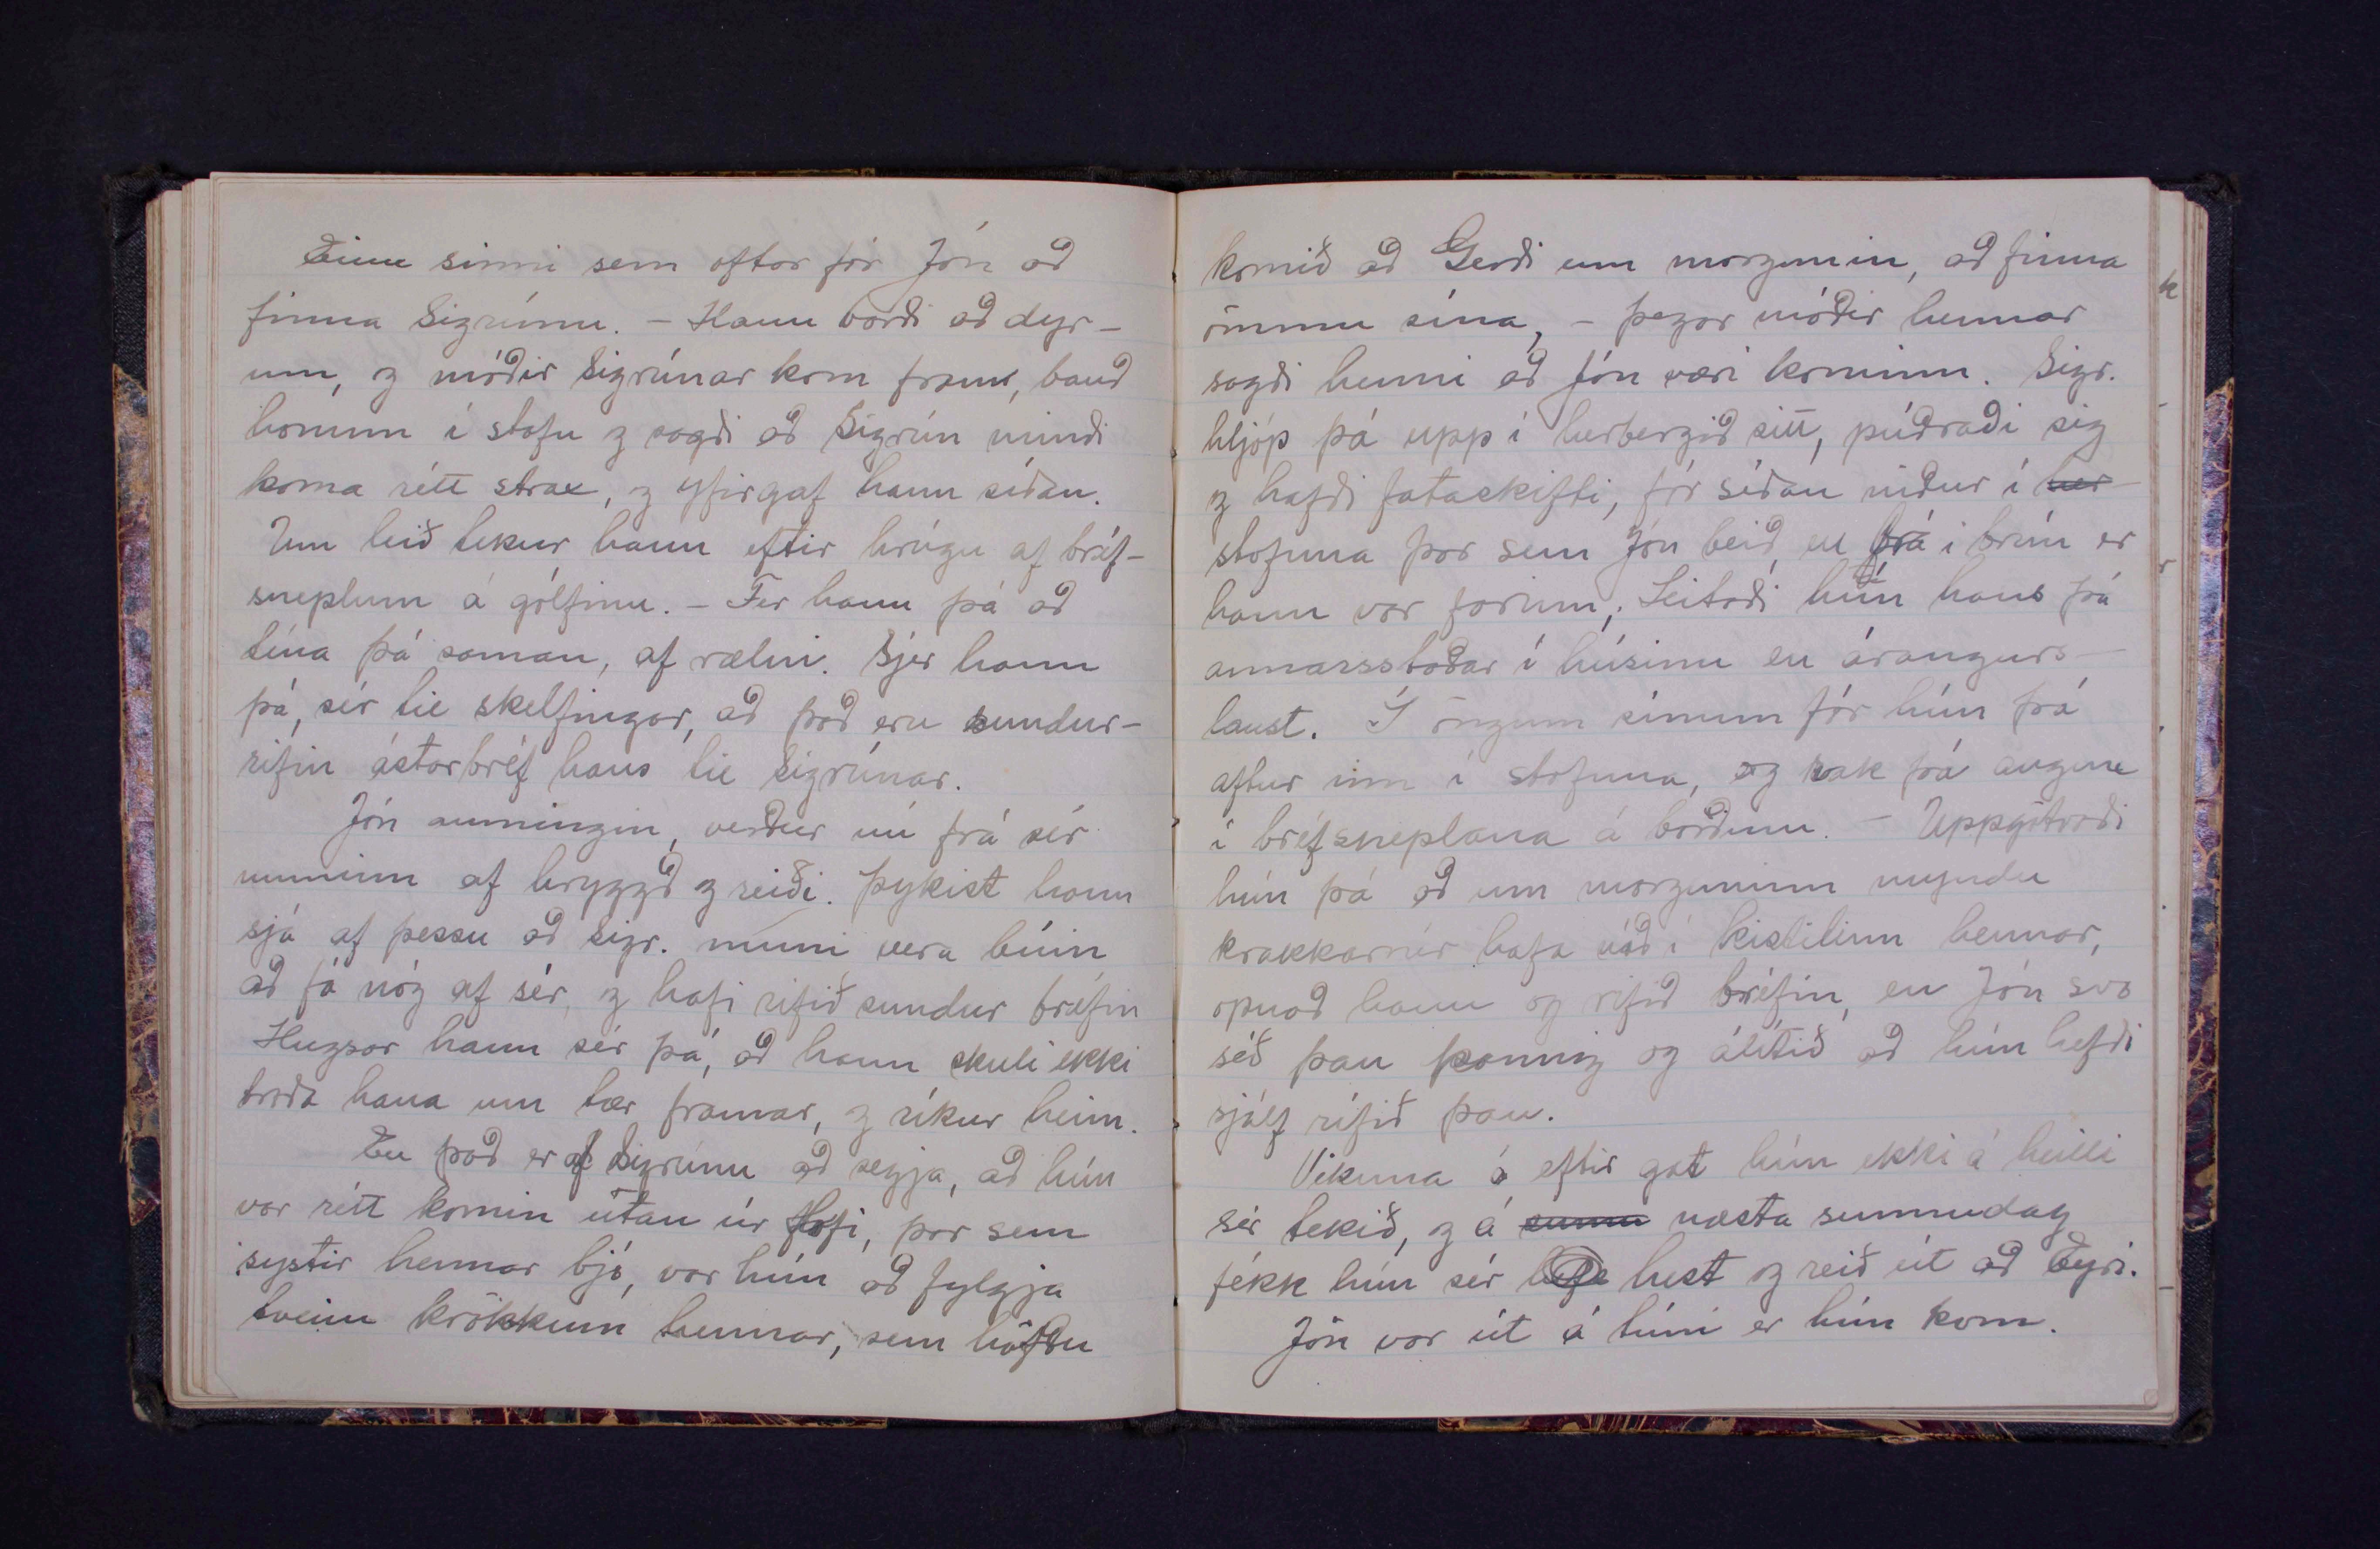 Einu sinni sem oftar fór Jón að
finna Sigrúnu. - Hann barði að dyr-
um, og móðir Sigrúnar kom fram, bauð
honum í stofu og sagði að Sigrún mindi
koma rétt strax, og yfirgaf hann síðan.
Um leið tekur hann eftir hrúgu af bréf-
sneplum á gólfinu. - Fer hann þá að
tína þá saman, af rælni. Sjer hann
þá, sér til skelfingar, að það eru sundur-
rifin ástarbréf hans til Sigrúnar.
Jón auminginn, verður nú frá sér
numinn af hryggð og reiði. Þykist hann
sjá af þessu að Sigr. muni vera búin
að fá nóg af sér, og hafi rifið sundur bréfin
Hugsar hann sér þá, að hann skuli ekki
troða hana um tær framar, og ríkur heim.
En það er af Sigrúnu að segja, að hún
var rétt komin utan úr Hofi, þar sem
systir hennar bjó, var hún að fylgja
tveim krökkum hennar, sem höfðu
komið að Gerði um morgunin, að finna
ömmu sína, - þegar móðir hennar
sagði henni að Jón væri kominn. Sigr.
hljóp þá upp í herbergið sitt, púðraði sig
og hafði fataskifti, fór síðan niður í her
stofuna þar sem Jón beið, en brá í brún er
hann var farinn, Leitaði hún hans þá
annarsstaðar í húsinu en árangurs-
laust. Í öngum sínum fór hún þá
aftur inn í stofuna, og rak þá augun
í bréfsneplana á borðinu. - Uppgötvaði
hún þá að um morguninn myndu
krakkarnir hafa náð í kistilinn hennar,
opnað hann og rifið bréfin, en Jón svo
séð þau þannig og álitið að hún hefði
sjálf rifið þau.
Vikuna á eftir gat hún ekki á heilli
sér tekið, og á sunnu næsta sunnudag
fékk hún sér hest og reið út að Eyri.
Jón var út á túni er hún kom.